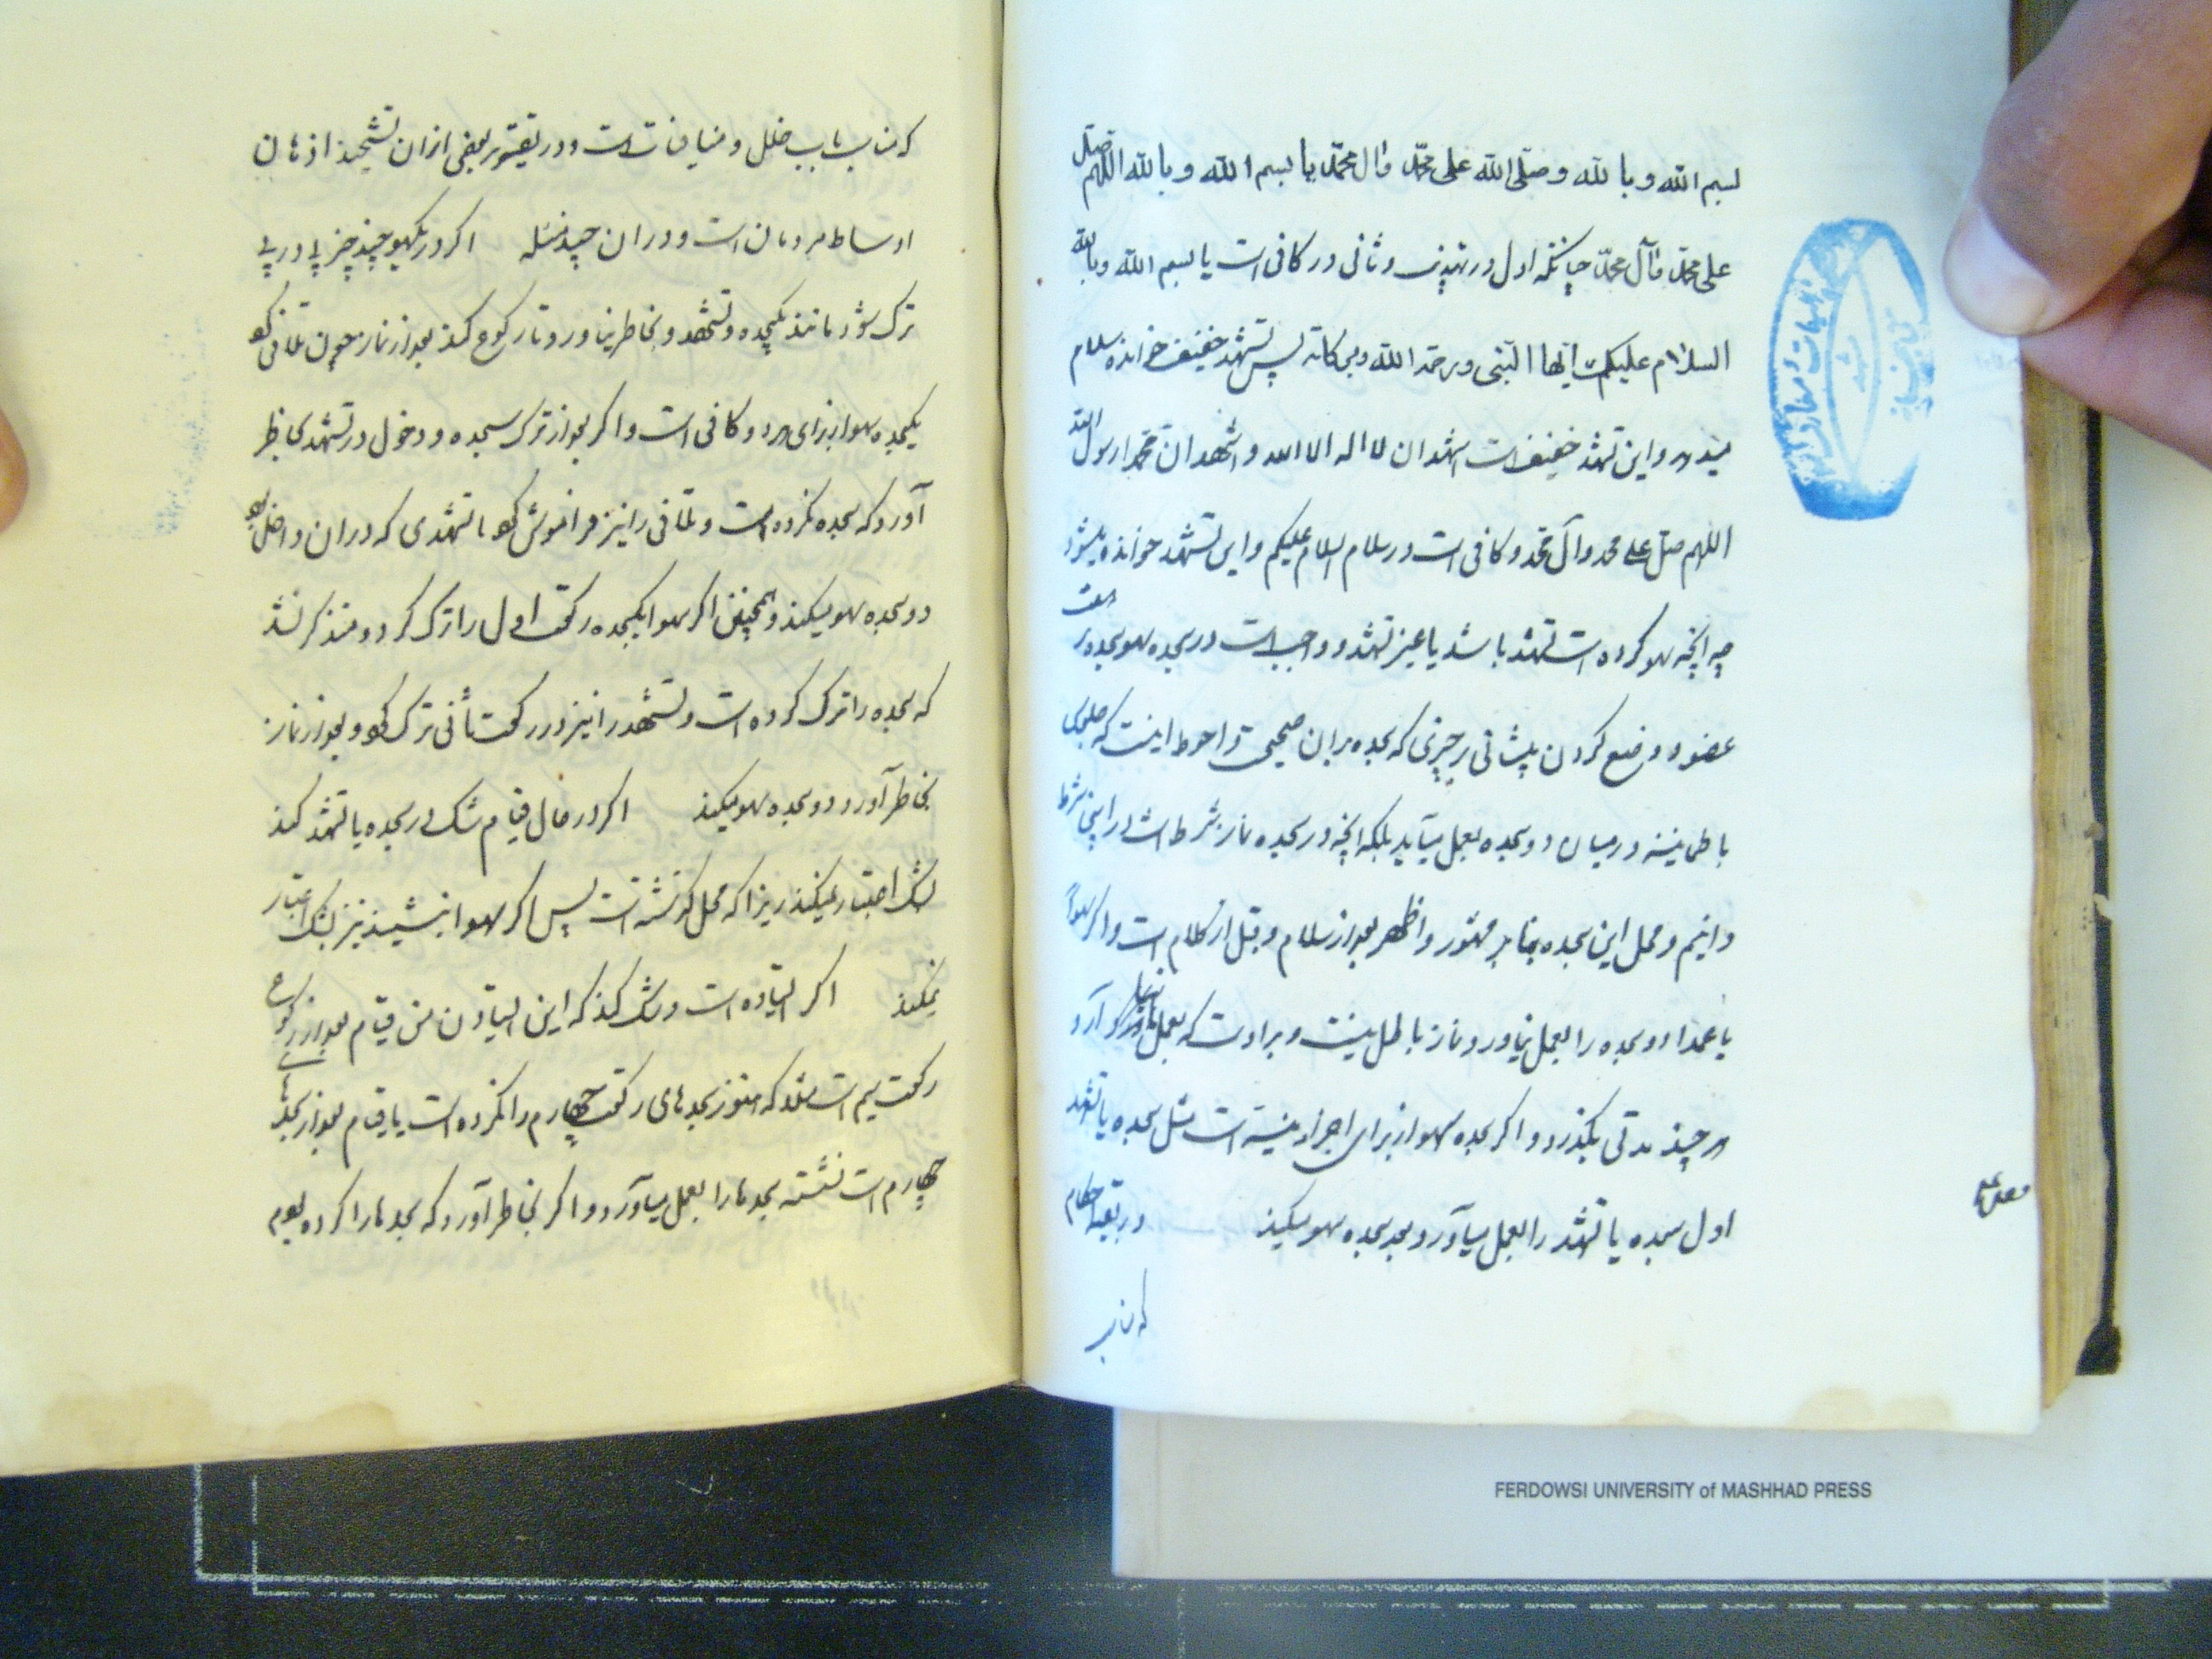 بسم الله و بالله و صلی الله علی محمد و آل محمد یا بسم الله و بالله اللهم صل
علی محمد و آل محمد چنانکه اول در تهذیب و ثانی در کافی است یا بسم الله و بالله
السلام علیک ایها النبی و رحمة الله و برکاته پس تشهد خفیف خوانده سلام
میدهد و این تشهد خفیف است اشهد ان لا اله الا الله و اشهد ان محمدا رسول الله
اللهم صل علی محمد و آل محمد و کافی است در سلام السلام علیکم و این تشهد خوانده میشود
چه آنچه سهو کرده است تشهد باشد یا غیر تشهد و واجب است در سجده سهو سجده بر هفت
عضو و وضع کردن پیشانی بر چیزی که سجده بر آن صحیح و احوط اینست که جلوس
با طمانینه در میان دو سجده بعمل میآید بلکه آنچه در سجده نماز شرط است در اینجا شرط
دانیم و محل این سجده بنابر مشهور و اظهر بعد از سلام و قبل از کلام است و اگر سهوا
یا عمدا دو سجده را بعمل نیاورد نماز باطل نیست و بر اوست که بعمل آورد
هر چند مدتی بگذرد و اگر سجده سهو از برای اجزاء منسیه است مثل سجده یا تشهد
اول سجده یا تشهد را بعمل میآورد و بعد سجده سهو میکند در بقیه احکام
که مناسب
که مناسب باب خلل و منافیات است و در تقریر بعضی از آن تشحیذ اذهان
اوساط مردمان است و در آن چند مسئله اگر در یکسهو چند چیز پی در پی
ترک شود مانند یکسجده و تشهد و بخاطر نیاورد تا رکوع کند بعد از نماز چون تلافی کرد
یکسجده سهو از برای هر دو کافی است و اگر بعد از ترک سجده و دخول در تشهد بخاطر
آورد که سجده نکرده است و تلافی را نیز فراموش کرد با تشهدی که در آن داخل
دو سجده سهو میکند و همچنین اگر سهوا یکسجده رکعت اول را ترک کرد و متذکر نشد
که سجده را ترک کرده است و تشهد را نیز در رکعت ثانی ترک کرد و بعد از نماز
بخاطر آورد دو سجده سهو میکند اگر در حال قیام شک در سجده یا تشهد کند
بشک اعتبار نمیکند زیرا که محل گذشته است پس اگر سهوا بنشیند نیز بشک اعتبار
نمیکند اگر ایستاده است و شک کند که این ایستادن من قیام بعد از رکوع
رکعت سیم است مثلا که هنوز سجدهای رکعت چهارم را نکرده است یا قیام بعد از سجدها
چهارم است نشسته سجدها را بعمل میآورد و اگر بخاطر آورد که سجدها را کرده بودم
FERDOWSI UNIVERSITY of MASHHAD PRESS